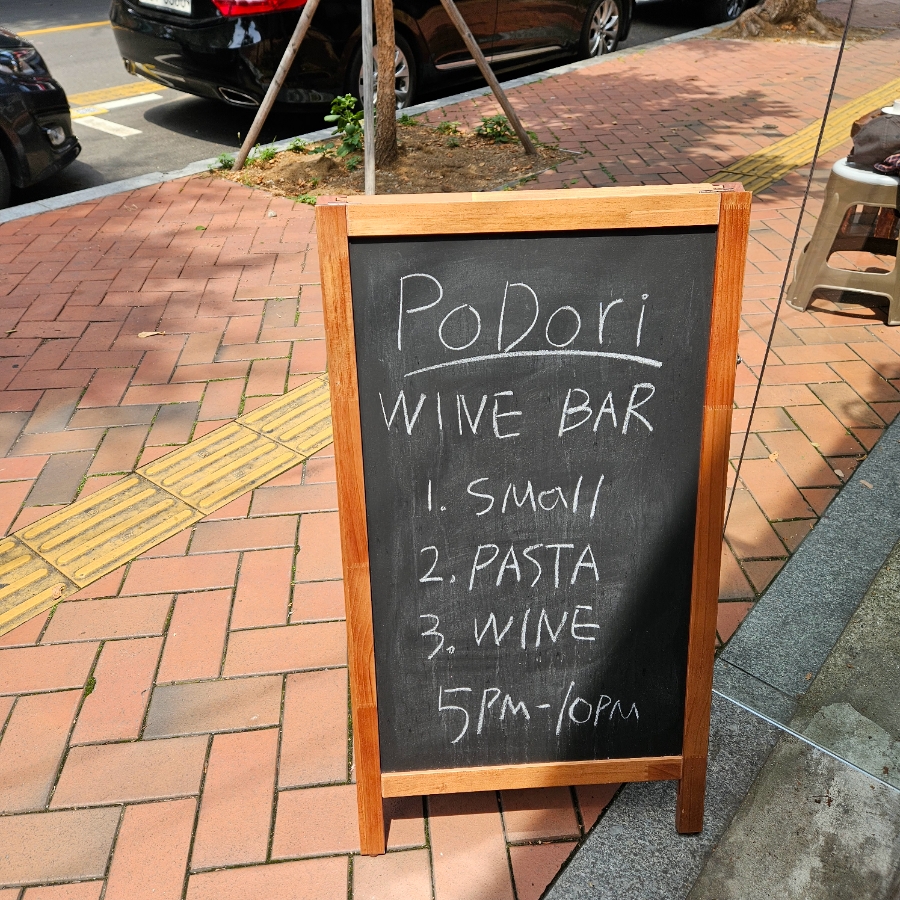 PoDori
WINE BAR
1. Small
2. PASTA
3. WINE
5PM-10PM